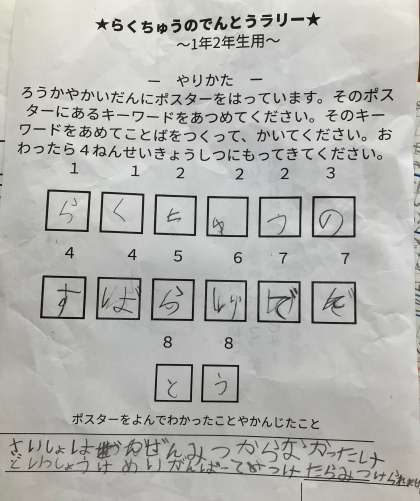 ★らくちゅうのでんとうラリー★
～1年2年生用～
ー やりかた ー
ろうかやかいだんにポスターをはっています。そのポス
ターにあるキーワードをあつめてください。そのキー
ワードをあめてことばをつくって、かいてください。お
わったら4ねんせいきょうしつにもってきてください。
1 1 2 2 2 3
ら く ち ゅ う の
4 4 5 6 7 7
す ば ら し
8 8
と う
ポスターをよんでわかったことやかんじたこと
さいしょは ぜんぜんみつからなかったけ
どいっしょうけめいがんばーて